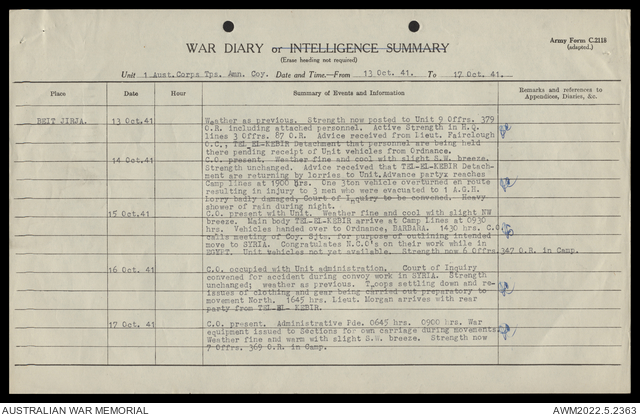 Army Form C.2118
(adapted.)
WAR DIARY or INTELLIGENCE SUMMARY
(Erase heading not required)
Unit 1 Aust.Corps Tps. Amn. Coy. Date and Time.—From 13 Oct. 41. To 17 Oct. 41.
Place Date Hour Summary of Events and Information Remarks and references to Appendices, Diaries, &c.
BEIT JIRJA. 13 Oct.41 Weather as previous. Strength now posted to Unit 9 Offrs. 379
O.R. including attached personnel. Active Strength in H.Q.
lines 3 Offrs. 87 O.R. Advice received from Lieut. Fairclough
O.C., TEL-EL-KEBIR Detachment that personnel are being held
there pending receipt of Unit vehicles from Ordnance.
14 Oct.41 C.O. present. Weather fine and cool with slight S.W. breeze.
Strength unchanged. Advice received that TEL-EL-KEBIR Detach-
ment are returning by lorries to Unit.Advance partyx reaches
Camp lines at 1900 hrs. One 3ton vehicle overturned en route
resulting in injury to 3 men who were evacuated to 1 A.G.H.
lorry badly damaged, Court of Inquiry to be convened. Heavy
shower of rain during night.
15 Oct.41 C.O. present with Unit. Weather fine and cool with slight NW
breeze. Main body TEL-EL-KEBIR arrive at Camp Lines at 0930
hrs. Vehicles handed over to Ordnance, BARBARA. 1430 hrs. C.O.
calls meeting of Coy. Sjts. for purpose of outlining intended
move to SYRIA. Congratulates N.C.O's on their work while in
EGYPT. Unit vehicles not yet available. Strength now 6 Offrs. 347 O.R. in Camp.
16 Oct. 41 C.O. occupied with Unit administration. Court of Inquiry
convened for accident during convoy work in SYRIA. Strength
unchanged; weather as previous. Troops settling down and re-
issues of clothing and gear being carried out preparatory to
movement North. 1645 hrs. Lieut. Morgan arrives with rear
party from TEL-EL-KEBIR.
17 Oct. 41 C.O. present. Administrative Pde. 0645 hrs. 0900 hrs. War
equipment issued to Sections for own carriage during movements.
Weather fine and warm with slight S.W. breeze. Strength now
7 Offrs. 369 O.R. in Camp.
AUSTRALIAN WAR MEMORIAL AWM2022.5.2363